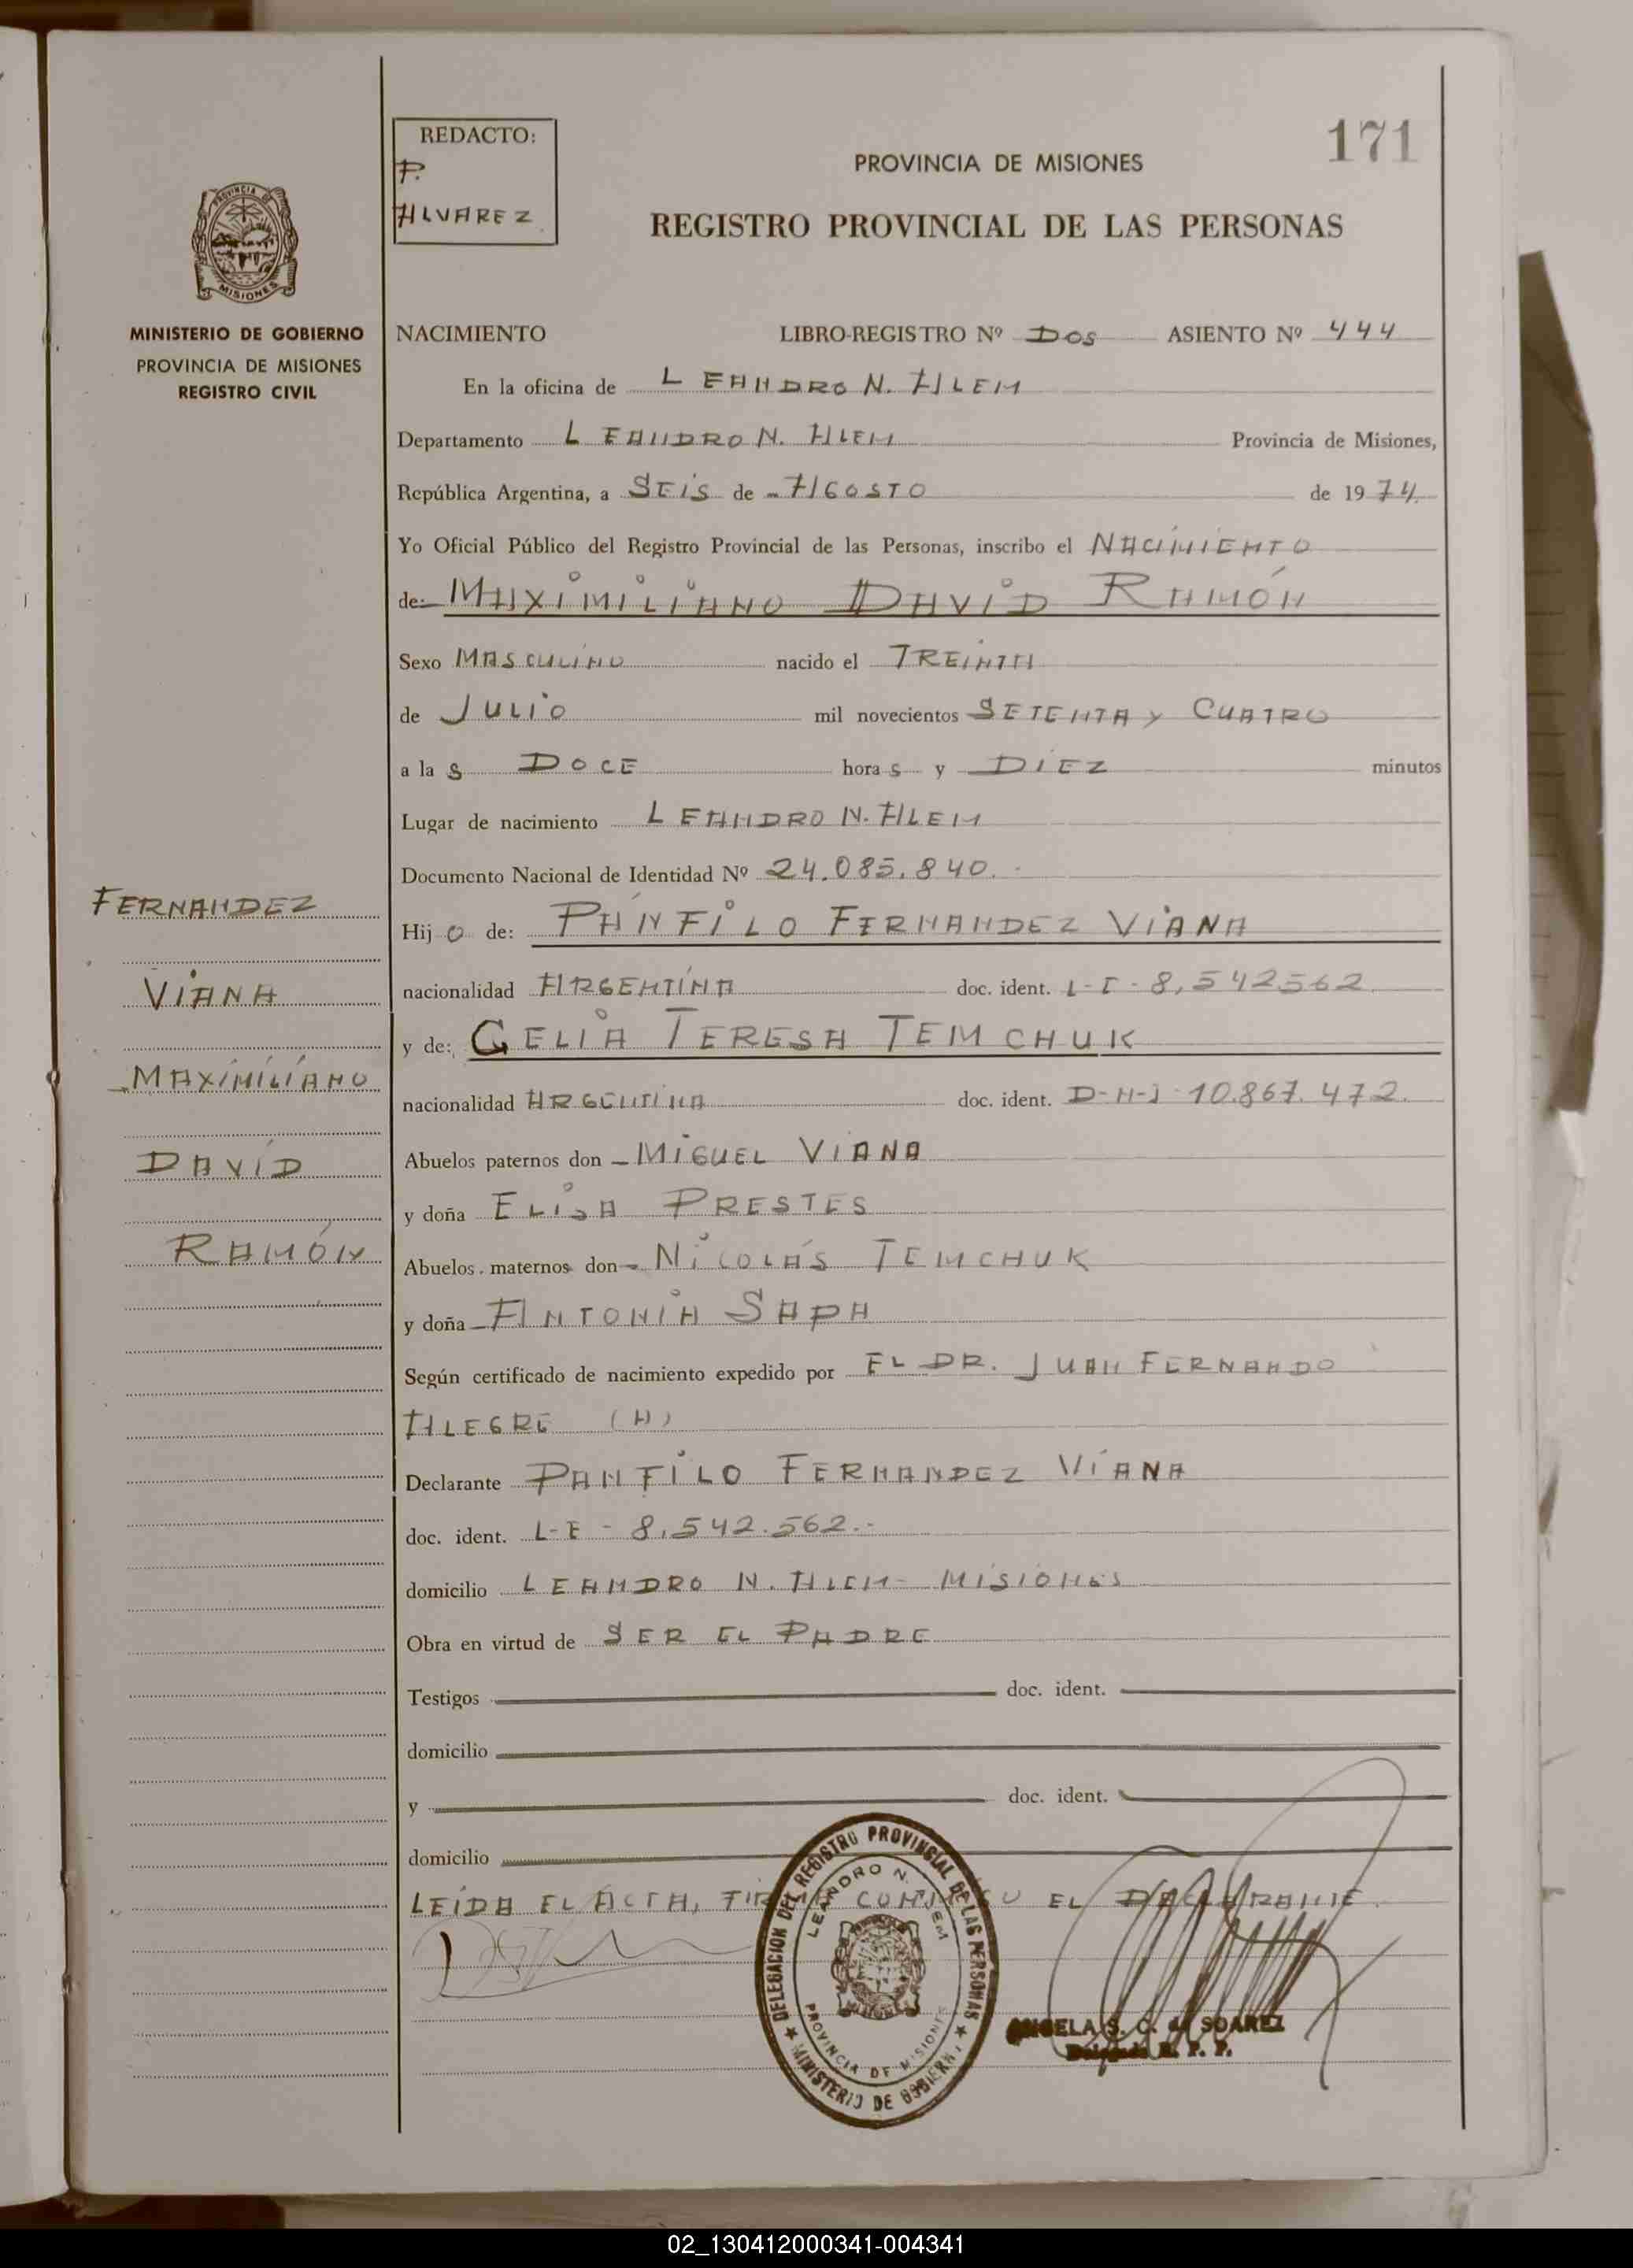 171
REDACTO:
P.
ALVAREZ
PROVINCIA DE MISIONES
REGISTRO PROVINCIAL DE LAS PERSONAS
PROVINCIA DE
MISIONES
MINISTERIO DE GOBIERNO
PROVINCIA DE MISIONES
REGISTRO CIVIL
NACIMIENTO LIBRO-REGISTRO Nº DOS ASIENTO Nº 444
En la oficina de LEANDRO N. ALEM
Departamento LEANDRO N. ALEM Provincia de Misiones,
República Argentina, a SEIS de AGOSTO de 1974.
Yo Oficial Público del Registro Provincial de las Personas, inscribo el NACIMIENTO
de: MAXIMILIANO DAVID RAMÓN
Sexo MASCULINO nacido el TREINTA
de JULIO mil novecientos SETENTA Y CUATRO
a la s DOCE hora s y DIEZ minutos
Lugar de nacimiento LEANDRO N. ALEM
Documento Nacional de Identidad Nº 24.085.840.-
FERNANDEZ
VIANA
MAXIMILIANO
DAVID
RAMÓN
Hij o de: PÁNFILO FERNANDEZ VIANA
nacionalidad ARGENTINA doc. ident. L-E-8,542562
y de: CELIA TERESA TEMCHUK
nacionalidad ARGENTINA doc. ident. D-N-I 10.867.472.
Abuelos paternos don MIGUEL VIANA
y doña ELISA PRESTES
Abuelos maternos don NICOLÁS TEMCHUK
y doña ANTONIA SAPA
Según certificado de nacimiento expedido por EL DR. JUAN FERNANDO
ALEGRE (H)
Declarante PANFILO FERNANDEZ VIANA
doc. ident. L-E - 8,542.562.-
domicilio LEANDRO N. ALEM - MISIONES
Obra en virtud de SER EL PADRE
Testigos doc. ident.
domicilio
y doc. ident.
domicilio
LEÍDA EL ACTA, FIRMA CONMIGO EL DECLARANTE.
DELEGACION DEL REGISTRO PROVINCIAL DE LAS PERSONAS
LEANDRO N. ALEM
PROVINCIA DE MISIONES
★ MINISTERIO DE GOBIERNO ★
ANGELA S. C. de SOAREZ
Delegada R. P. P.
02_130412000341-004341